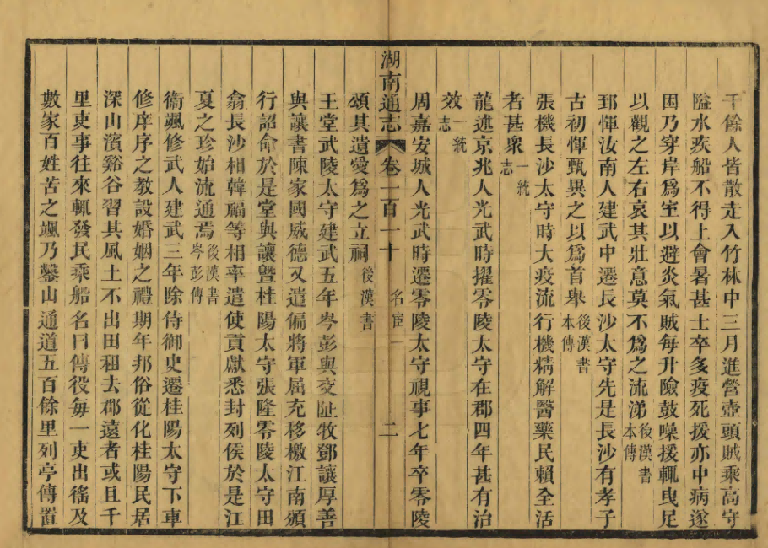 千餘人皆散走入竹林中三月進營壺頭賊乘高守
隘水疾船不得上會暑甚士卒多疫死援亦中病遂
困乃穿岸爲室以避炎氣賊每升險鼓噪援輒曳足
以觀之左右哀其壯意莫不爲之流涕後漢書本傳
郅惲汝南人建武中遷長沙太守先是長沙有孝子
古初惲甄異之以爲首舉後漢書本傳
張機長沙太守時大疫流行機精解醫藥民賴全活
者甚衆一統志
龍述京兆人光武時擢零陵太守在郡四年甚有治
效一統志
周嘉安城人光武時遷零陵太守視事七年卒零陵
頌其遺愛爲之立祠後漢書
湖南通志 卷一百一十 名宦一 二
王堂武陵太守建武五年岑彭與交阯牧鄧讓厚善
與讓書陳家國威德又遣偏將軍屈充移檄江南頒
行詔命於是堂與讓曁桂陽太守張隆零陵太守田
翕長沙相韓福等相率遣使貢獻悉封列侯於是江
夏之珍始流通焉後漢書岑彭傳
衞颯修武人建武三年除侍御史遷桂陽太守下車
修庠序之教設婚姻之禮期年邦俗從化桂陽民居
深山濱谿谷習其風土不出田租去郡遠者或且千
里吏事往來輒發民乘船名曰傳役每一吏出徭及
數家百姓苦之颯乃鑿山通道五百餘里列亭傳置